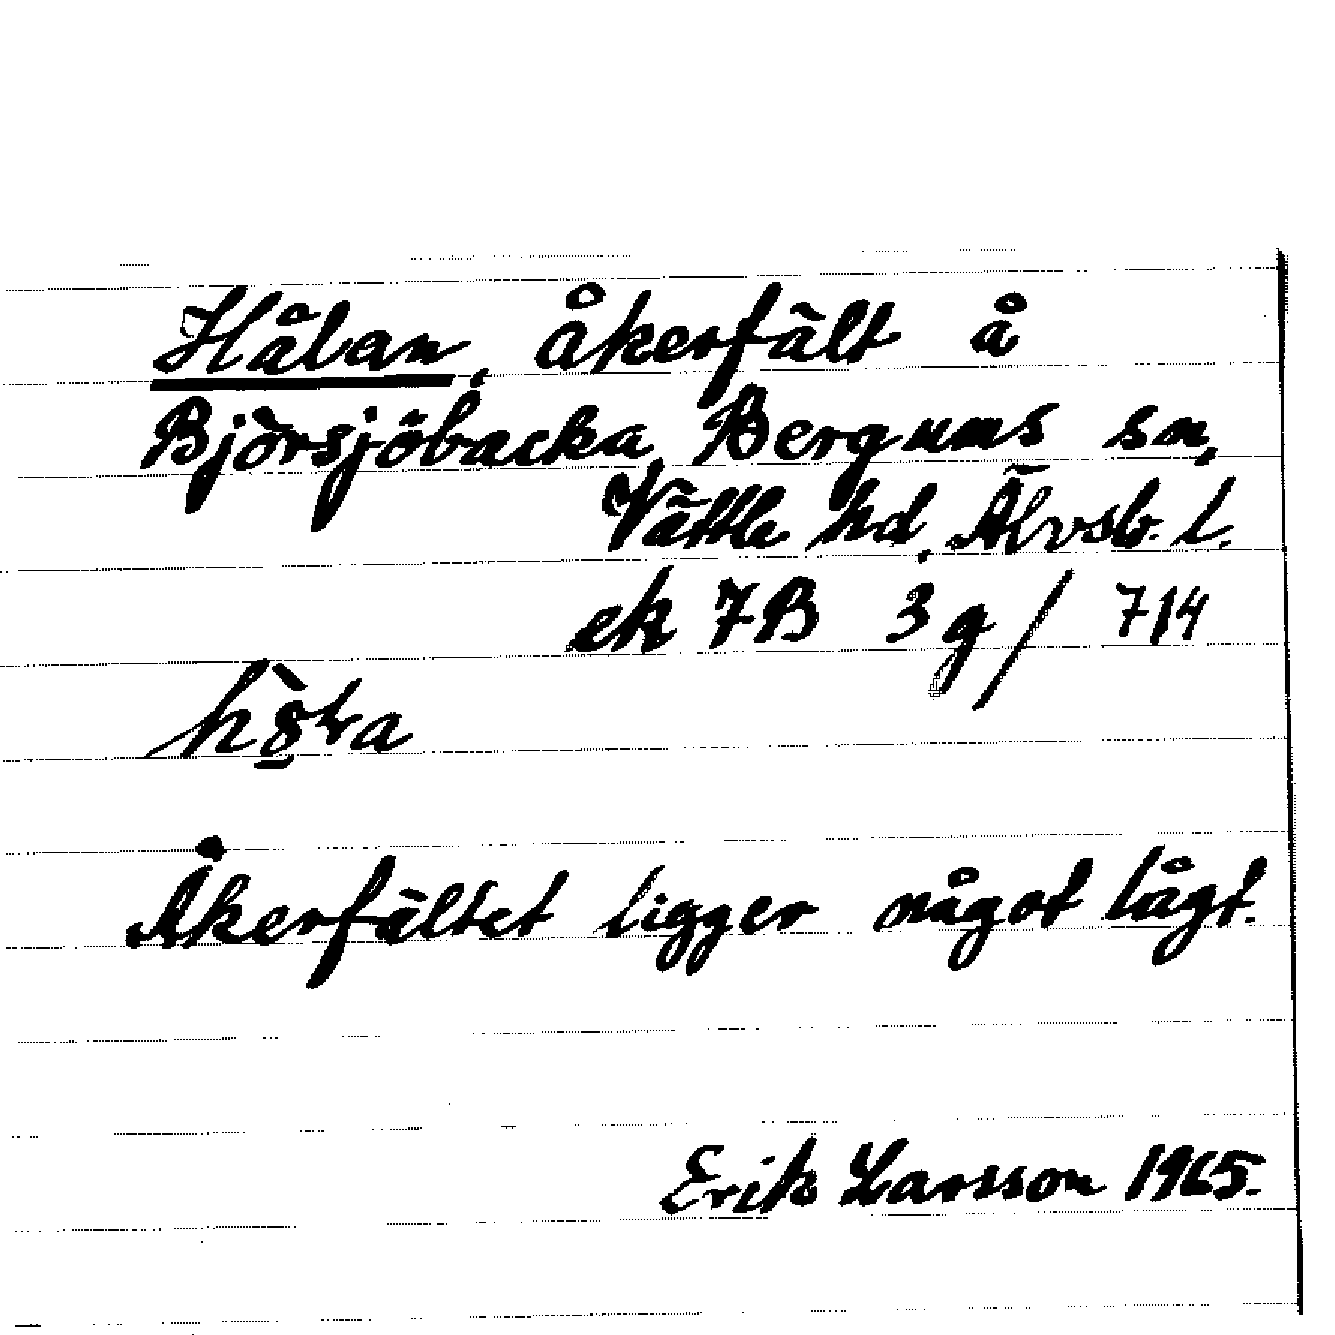 Hålan, åkerfält å
Björsjöbacka, Bergums sn,
Vättle hd, Älvsb. l.
ek 7B 3g / 714
Åkerfältet ligger något lågt.
Erik Larsson 1965.